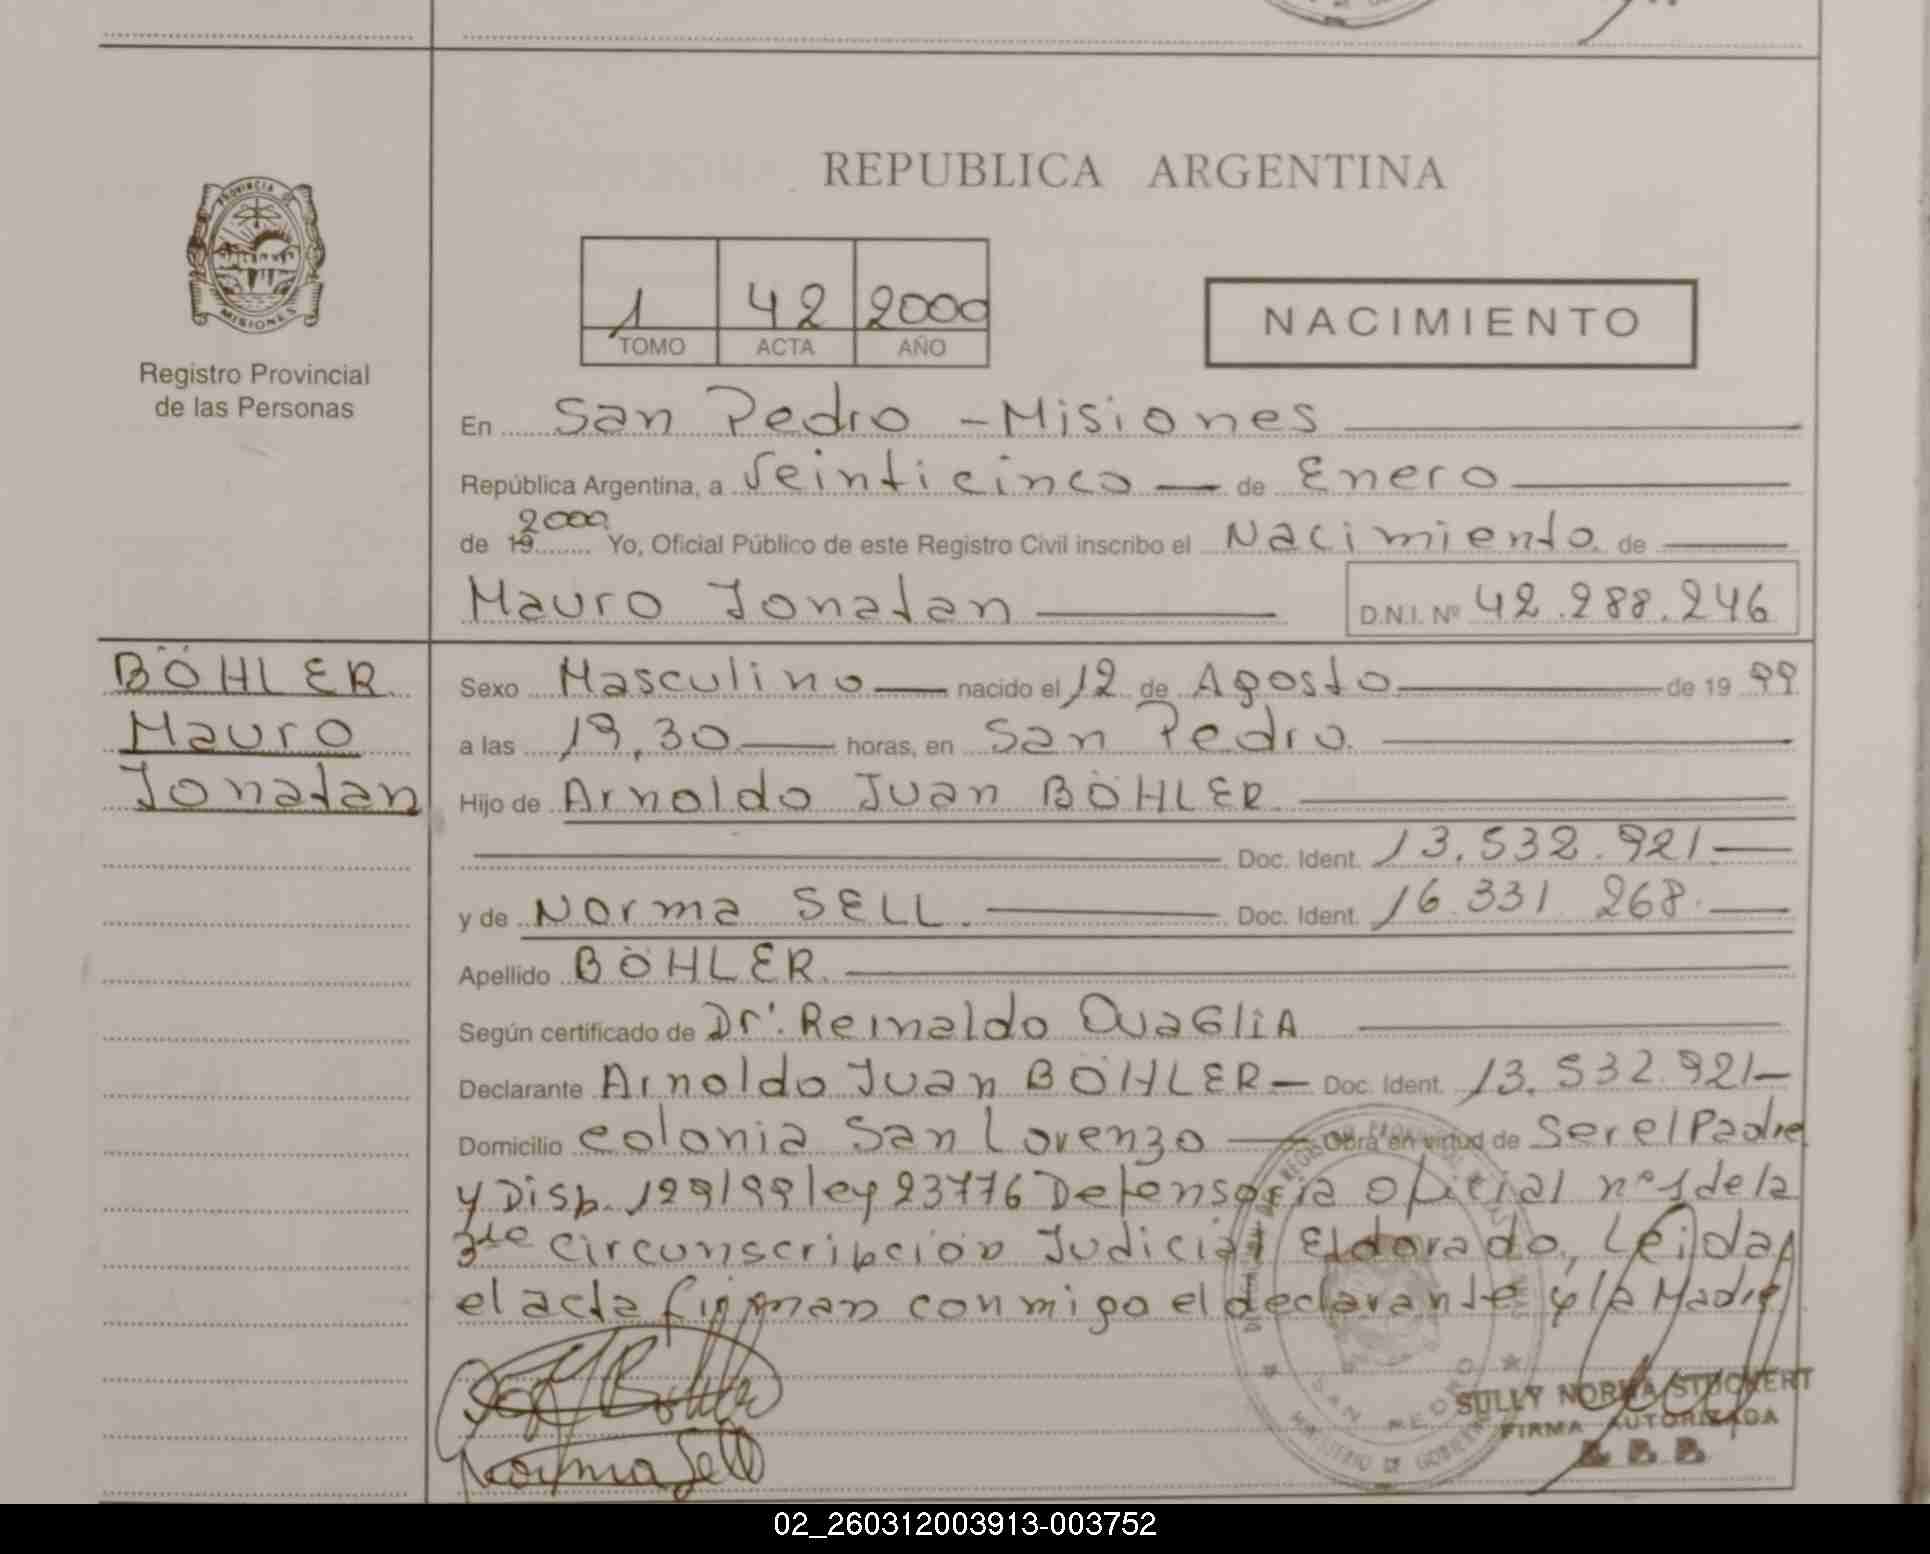 REPUBLICA ARGENTINA
PROVINCIA DE
MISIONES
Registro Provincial
de las Personas
1 42 2000
TOMO ACTA AÑO
NACIMIENTO
En San Pedro - Misiones
República Argentina, a Veinticinco de Enero
de 19 2000 Yo, Oficial Público de este Registro Civil inscribo el Nacimiento de
Mauro Jonatan D.N.I. Nº 42.288.246
BÖHLER
Mauro
Jonatan
Sexo Masculino nacido el 12 de Agosto de 19 99
a las 19,30 horas, en San Pedro.
Hijo de Arnoldo Juan BÖHLER
Doc. Ident. 13.532.921.
y de Norma SELL. Doc. Ident. 16.331 268.
Apellido BÖHLER.
Según certificado de Dr. Reinaldo QUAGLIA
Declarante Arnoldo Juan BÖHLER - Doc. Ident. 13.532.921-
Domicilio colonia San Lorenzo Obra en virtud de Ser el Padre
y Disp. 129/99 ley 23776 Defensoria oficial nº 1 de la
3ra circunscripción Judicial Eldorado, Leida
el acta firman conmigo el declarante y la Madre
Norma Sell
SAN PEDRO
MINISTERIO DE GOBIERNO
SULLY NORMA STOCKERT
FIRMA AUTORIZADA
02_260312003913-003752